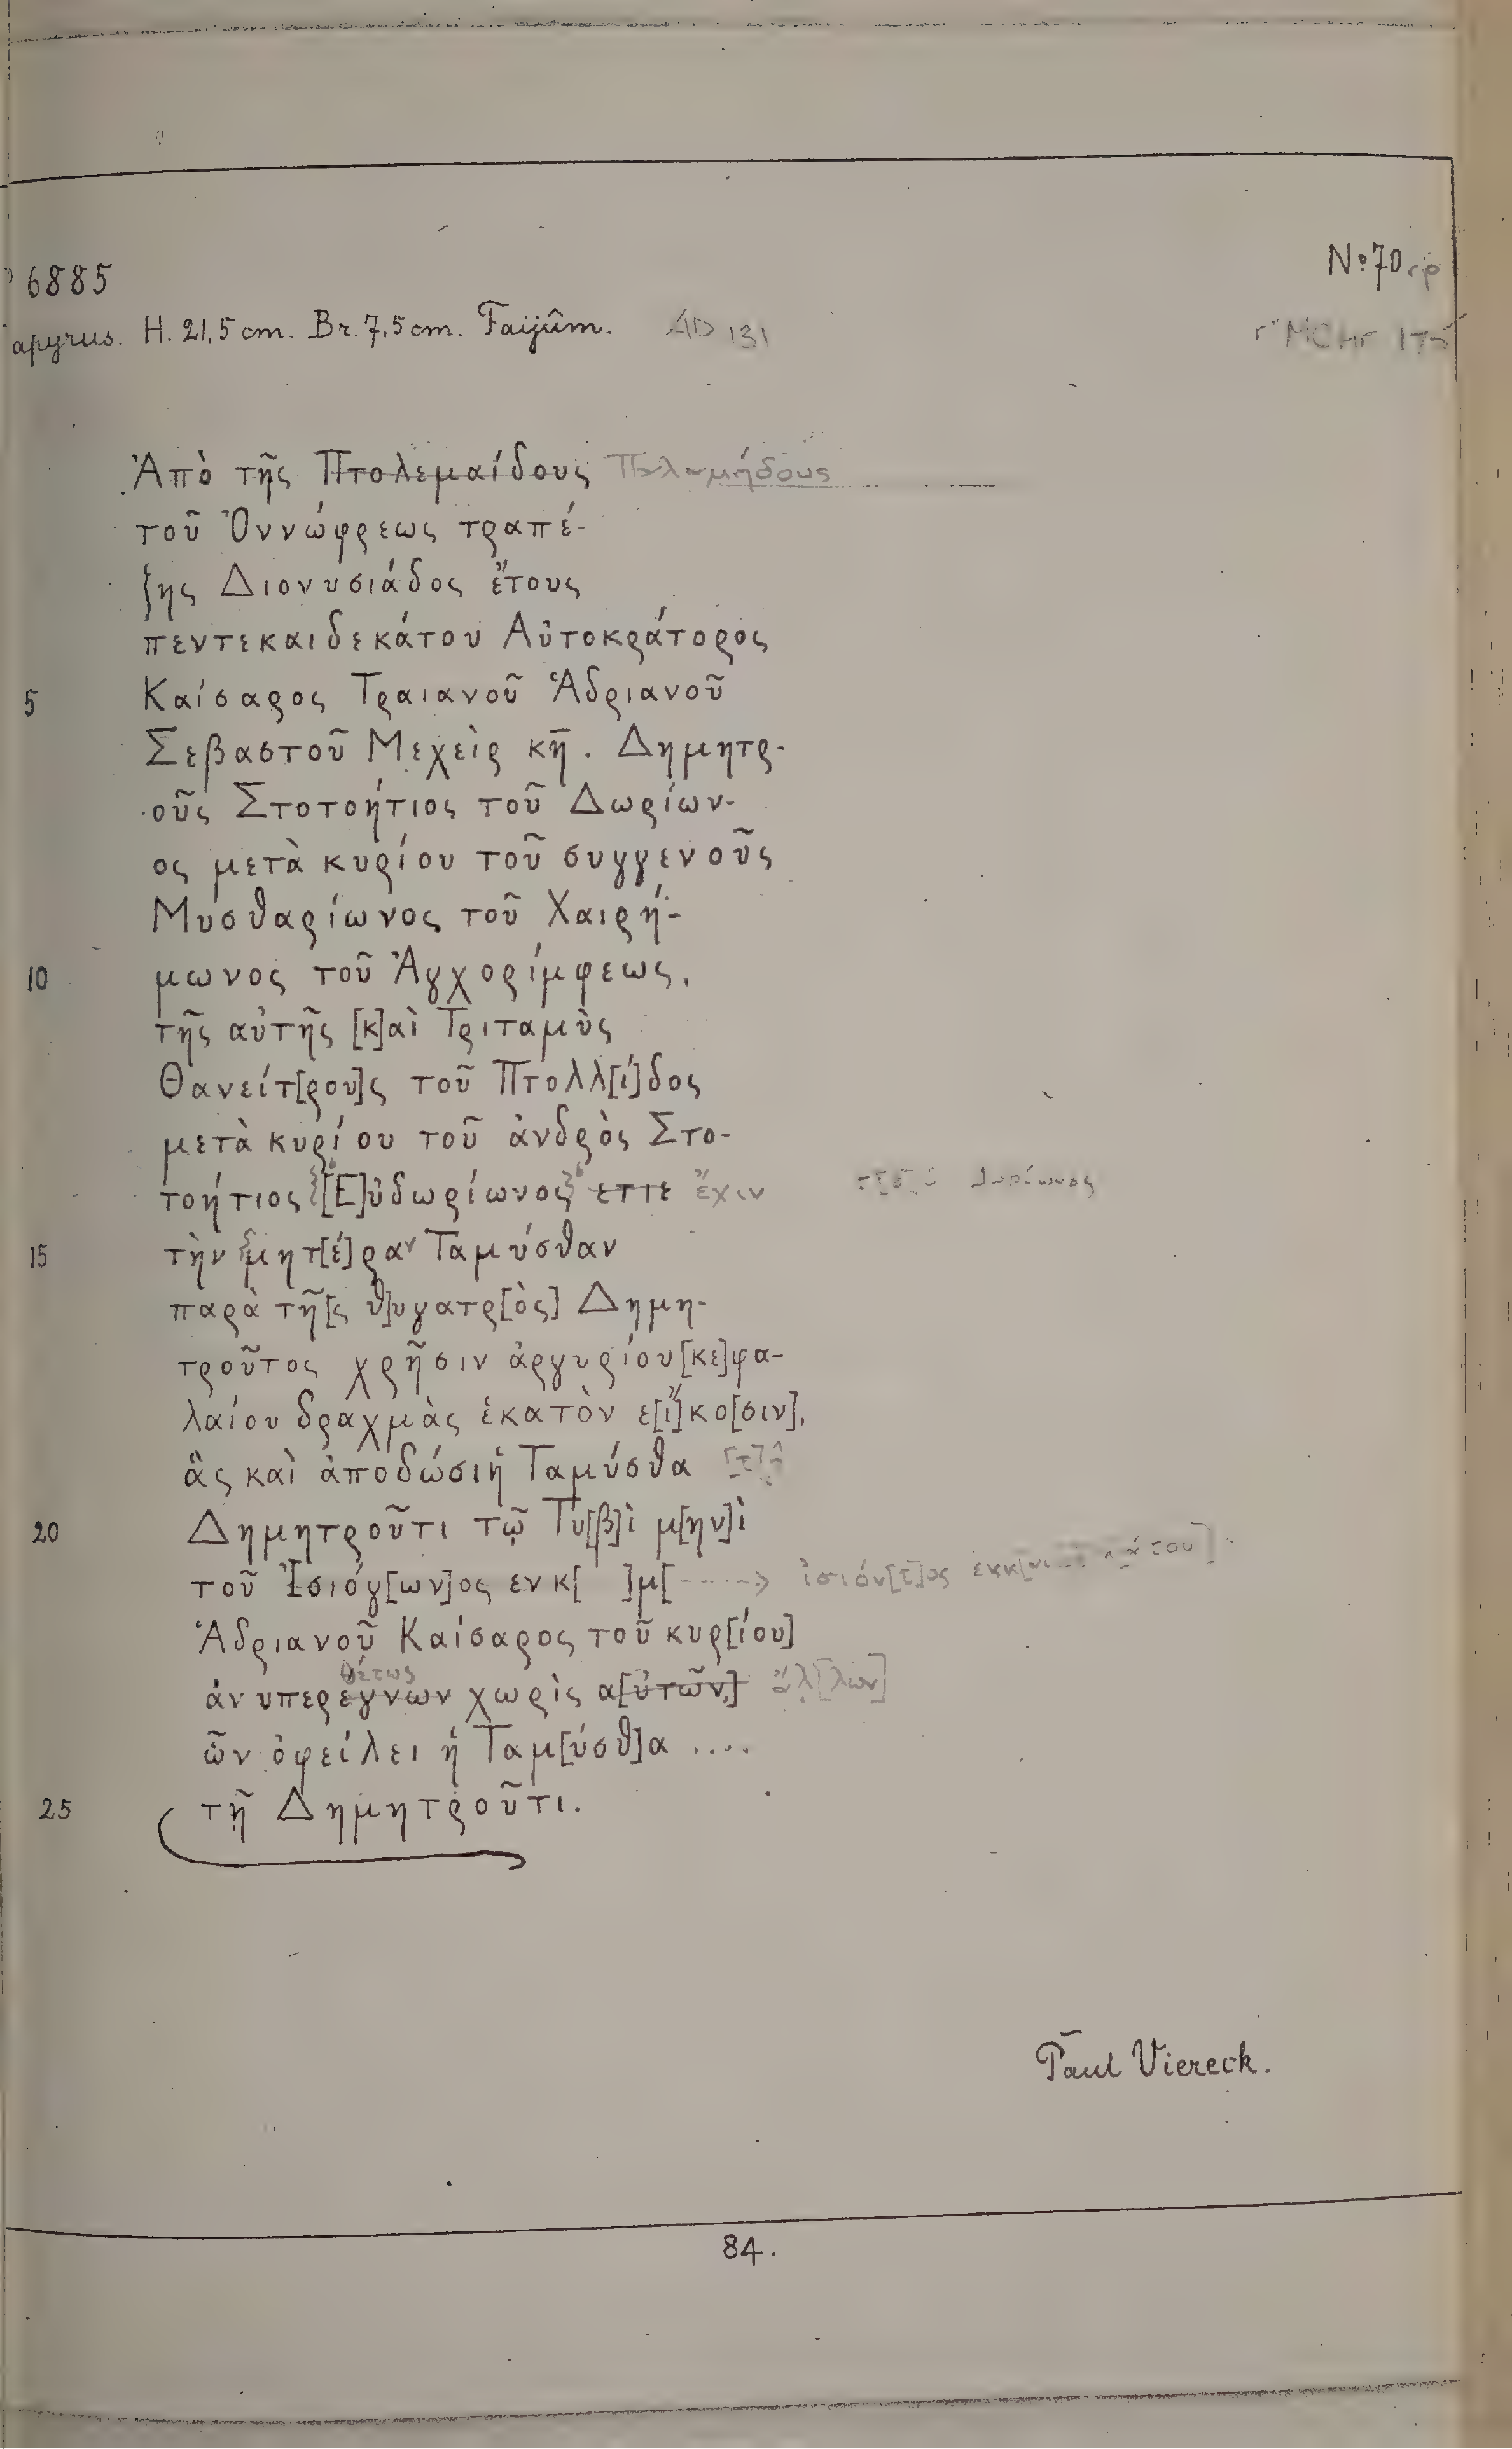 6885
No 70
apyrus. H. 21,5 cm. Br. 7,5 cm. Faijûm. AD 131
Ἀπὸ τῆς Πτολεμαίδους
τοῦ Ὀννώφρεως τραπέ-
ζης Διονυσιάδος ἔτους
πεντεκαιδεκάτου Αὐτοκράτορος
5 Καίσαρος Τραιανοῦ Ἁδριανοῦ
Σεβαστοῦ Μεχεὶρ κη̄. Δημητρ-
οῦς Στοτοήτιος τοῦ Δωρίων-
ος μετὰ κυρίου τοῦ συγγενοῦς
Μυσθαρίωνος τοῦ Χαιρή-
10 μωνος τοῦ Ἀγχορίμφεως,
τῆς αὐτῆς [κ]αὶ Τριταμὺς
Θανείτ[ρου]ς τοῦ Πτολλ[ί]δος
μετὰ κυρίου τοῦ ἀνδρὸς Στο-
τοήτιος [Ε]ὐδωρίωνος ετιε ἔχιν
15 τὴν μητ[έ]ραν Ταμύσθαν
παρὰ τῆ[ς θ]υγατρ[ὸς] Δημη-
τροῦτος χρῆσιν ἀργυρίου [κε]φα-
λαίου δραχμὰς ἑκατὸν ε[ἴ]κο[σιν],
ἃς καὶ ἀποδώσι ἡ Ταμύσθα [τ]ῇ
20 Δημητροῦτι τῷ Τυ[β]ὶ μ[ην]ὶ
τοῦ Ἰσιόγ[ων]ος εν κ[ ]μ[ ἰσιόν[τ]ος
Ἁδριανοῦ Καίσαρος τοῦ κυρ[ίου]
θέτως
ἀνυπερεγνων χωρὶς α[ὐτῶν,] ἄλ[λων]
ὧν ὀφείλει ἡ Ταμ[ύσθ]α ....
25 τῇ Δημητροῦτι.
Paul Viereck.
84.